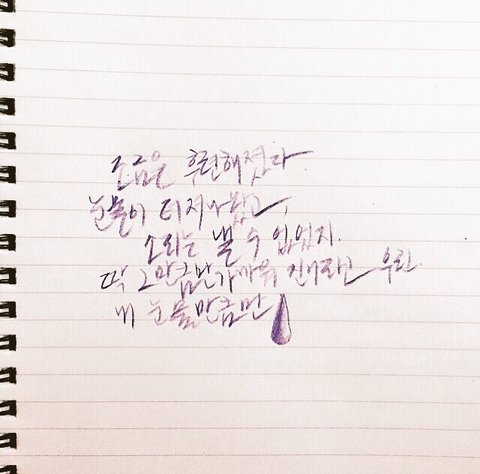 조금은 후련해졌다.
눈물이 터져나왔고,
소리는 낼 수 없었지.
딱 그만큼만 가까워 진거라고 우린.
내 눈물만큼만